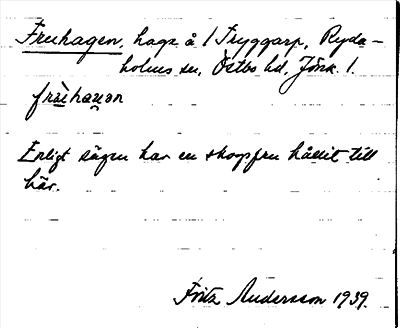 Fruhagen, hage å 1 Tryggarp, Ryda-
holms sn, Östbo hd, Jönk. l.
frùhaɡan
Enligt sägen har en skogsfru hållit till
här.
Fritz Andersson 1939.